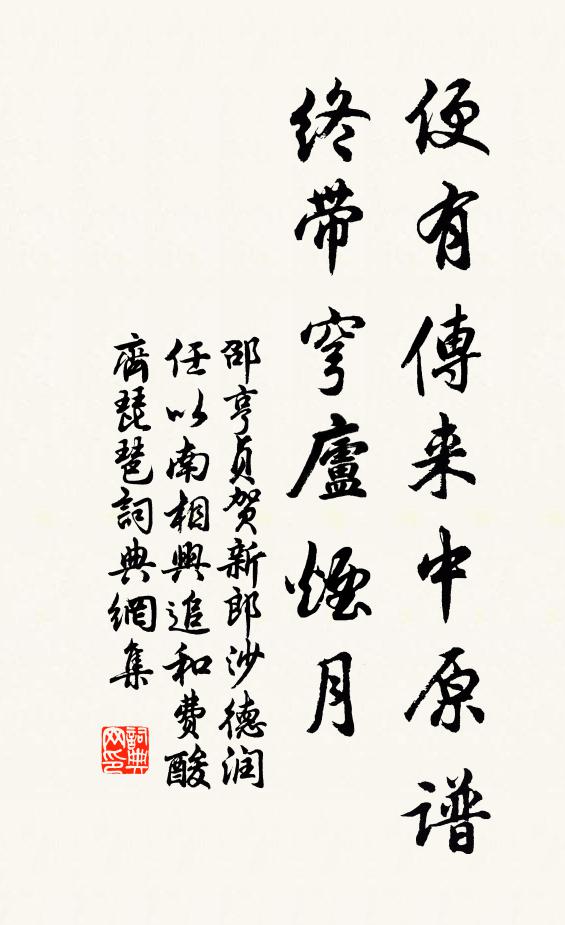 便有傳来中原譜
終带穹廬煙月
邵亨貞贺新郎沙德润
任以南相興追和費酸
齊琵琶詞典網集
詞典
网印